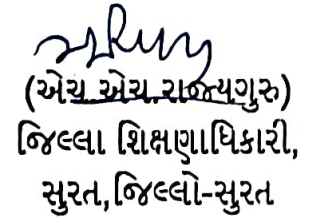 (એચ.એચ.રાજ્યગુરુ)
જિલ્લા શિક્ષણાધિકારી,
સુરત,જિલ્લો-સુરત